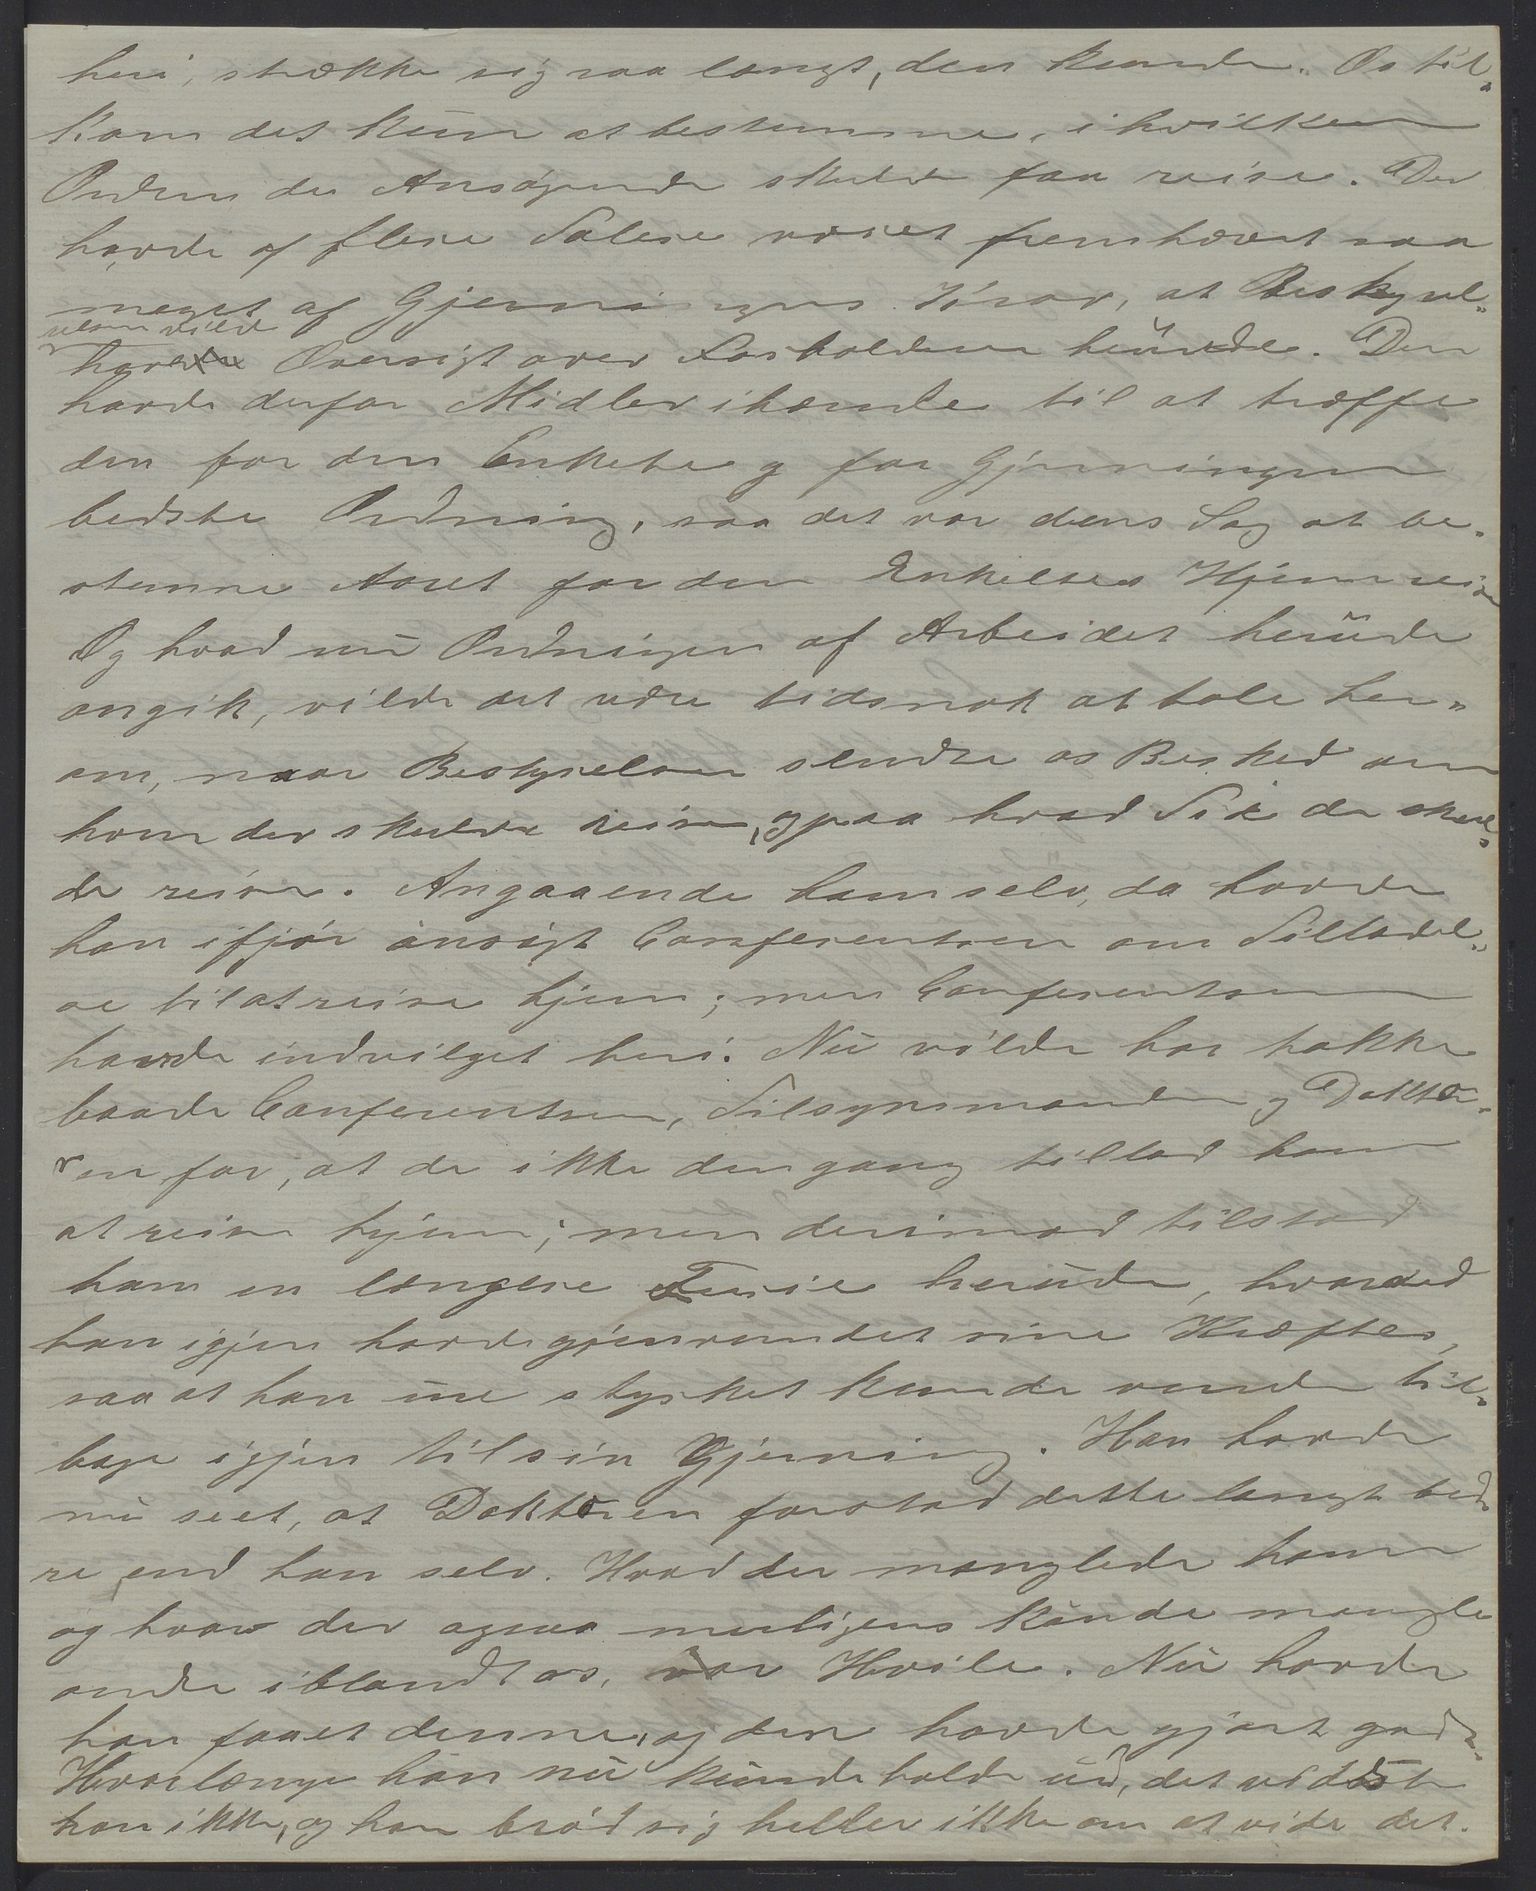 heri, strække sig saa langt, den kunde. Os til-
kom det kun at bestemme, i hvilken
Orden de Ansøgende skulde faa reise. Der
havde af flere Talere været fremhævet saa
meget af Gjerningens Krav, at Bestyrel-
selsen vilde
have Oversigt over Forholdene herude. Den
havde derfor Midler ihænde til at træffe
den for den Enkelte og for Gjerningen
bedste Ordning, saa det var dens Sag at be-
stemme Aaret for den Enkeltes Hjemreise
Og hvad nu Ordningen af Arbeidet herude
angik, vilde det være tidsnok at tale her-
om, naar Bestyrelsen sendte os Besked om
hvem der skulde reise, og paa hvad Tid de skul-
de reise. Angaaende ham selv, da havde
han ifjor ansøgt Conferentsen om Tilladel-
se til at reise hjem; men Conferentsen
havde indvilget heri. Nu vilde han takke
baade Conferentsen, Tilsynsmanden og Dokto-
ren for, at de ikke dengang tillod ham
at reise hjem; men derimod tilstod
ham en længere Ferie herude, hvorved
han igjen havde gjenvundet sine Kræfter,
saa at han nu styrket kunde vende til-
bage igjen til sin Gjerning. Han havde
nu seet, at Doktoren forstod dette langt bed-
re, end han selv. Hvad der manglede ham
og hvad der ogsaa muligens kunde mangle
andre iblandt os, var Hvile. Nu havde
han faaet denne, og den havde gjort godt.
Hvorlænge han nu kunde holde ud, det vidste
han ikke, og han brød sig heller ikke om at vide det.